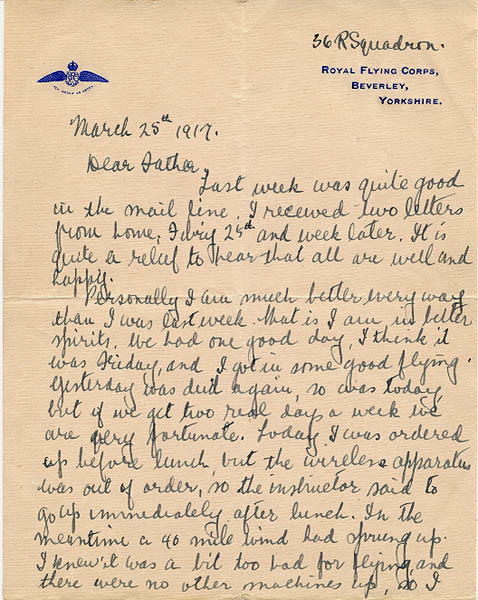 36 R Squadron.
ROYAL FLYING CORPS,
BEVERLEY,
YORKSHIRE.
March 25th 1917.
Dear Father,
Last week was quite good
in the mail line. I received two letters
from home, 25th and week later. It is
quite a relief to hear that all are well and
happy.
Personally I am much better every way
than I was last week. that is I am in better
spirits. We had one good day, I think it
was Friday, and I got in some good flying.
Yesterday was dud again, so was today,
but if we get two real days a week we
are very fortunate. Today I was ordered
up before lunch, but the wireless apparatus
was out of order, so the instructor said to
go up immediately after lunch. In the
meantime a 40 mile wind had sprung up.
I knew it was a bit too bad for flying and
there were no other machines up, so I